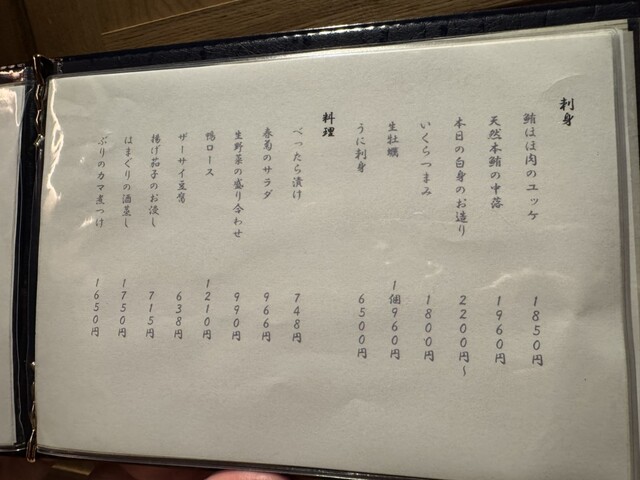 刺身
鮪ほほ肉のユッケ 1850円
天然本鮪の中落 1960円
本日の白身のお造り 2200円～
いくらつまみ 1800円
生牡蠣 1個960円
うに刺身 6500円
料理
べったら漬け 748円
春菊のサラダ 966円
生野菜の盛り合わせ 990円
鴨ロース 1210円
ザーサイ豆腐 638円
揚げ茄子のお浸し 715円
はまぐりの酒蒸し 1750円
ぶりのカマ煮つけ 1650円